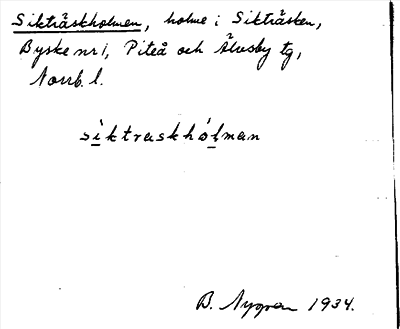 Sikträskholmen, holme i Sikträsken,
Byske nr 1, Piteå och Älvsby tg,
Norrb. l.
siktraskhólman
B. Nygren 1934.